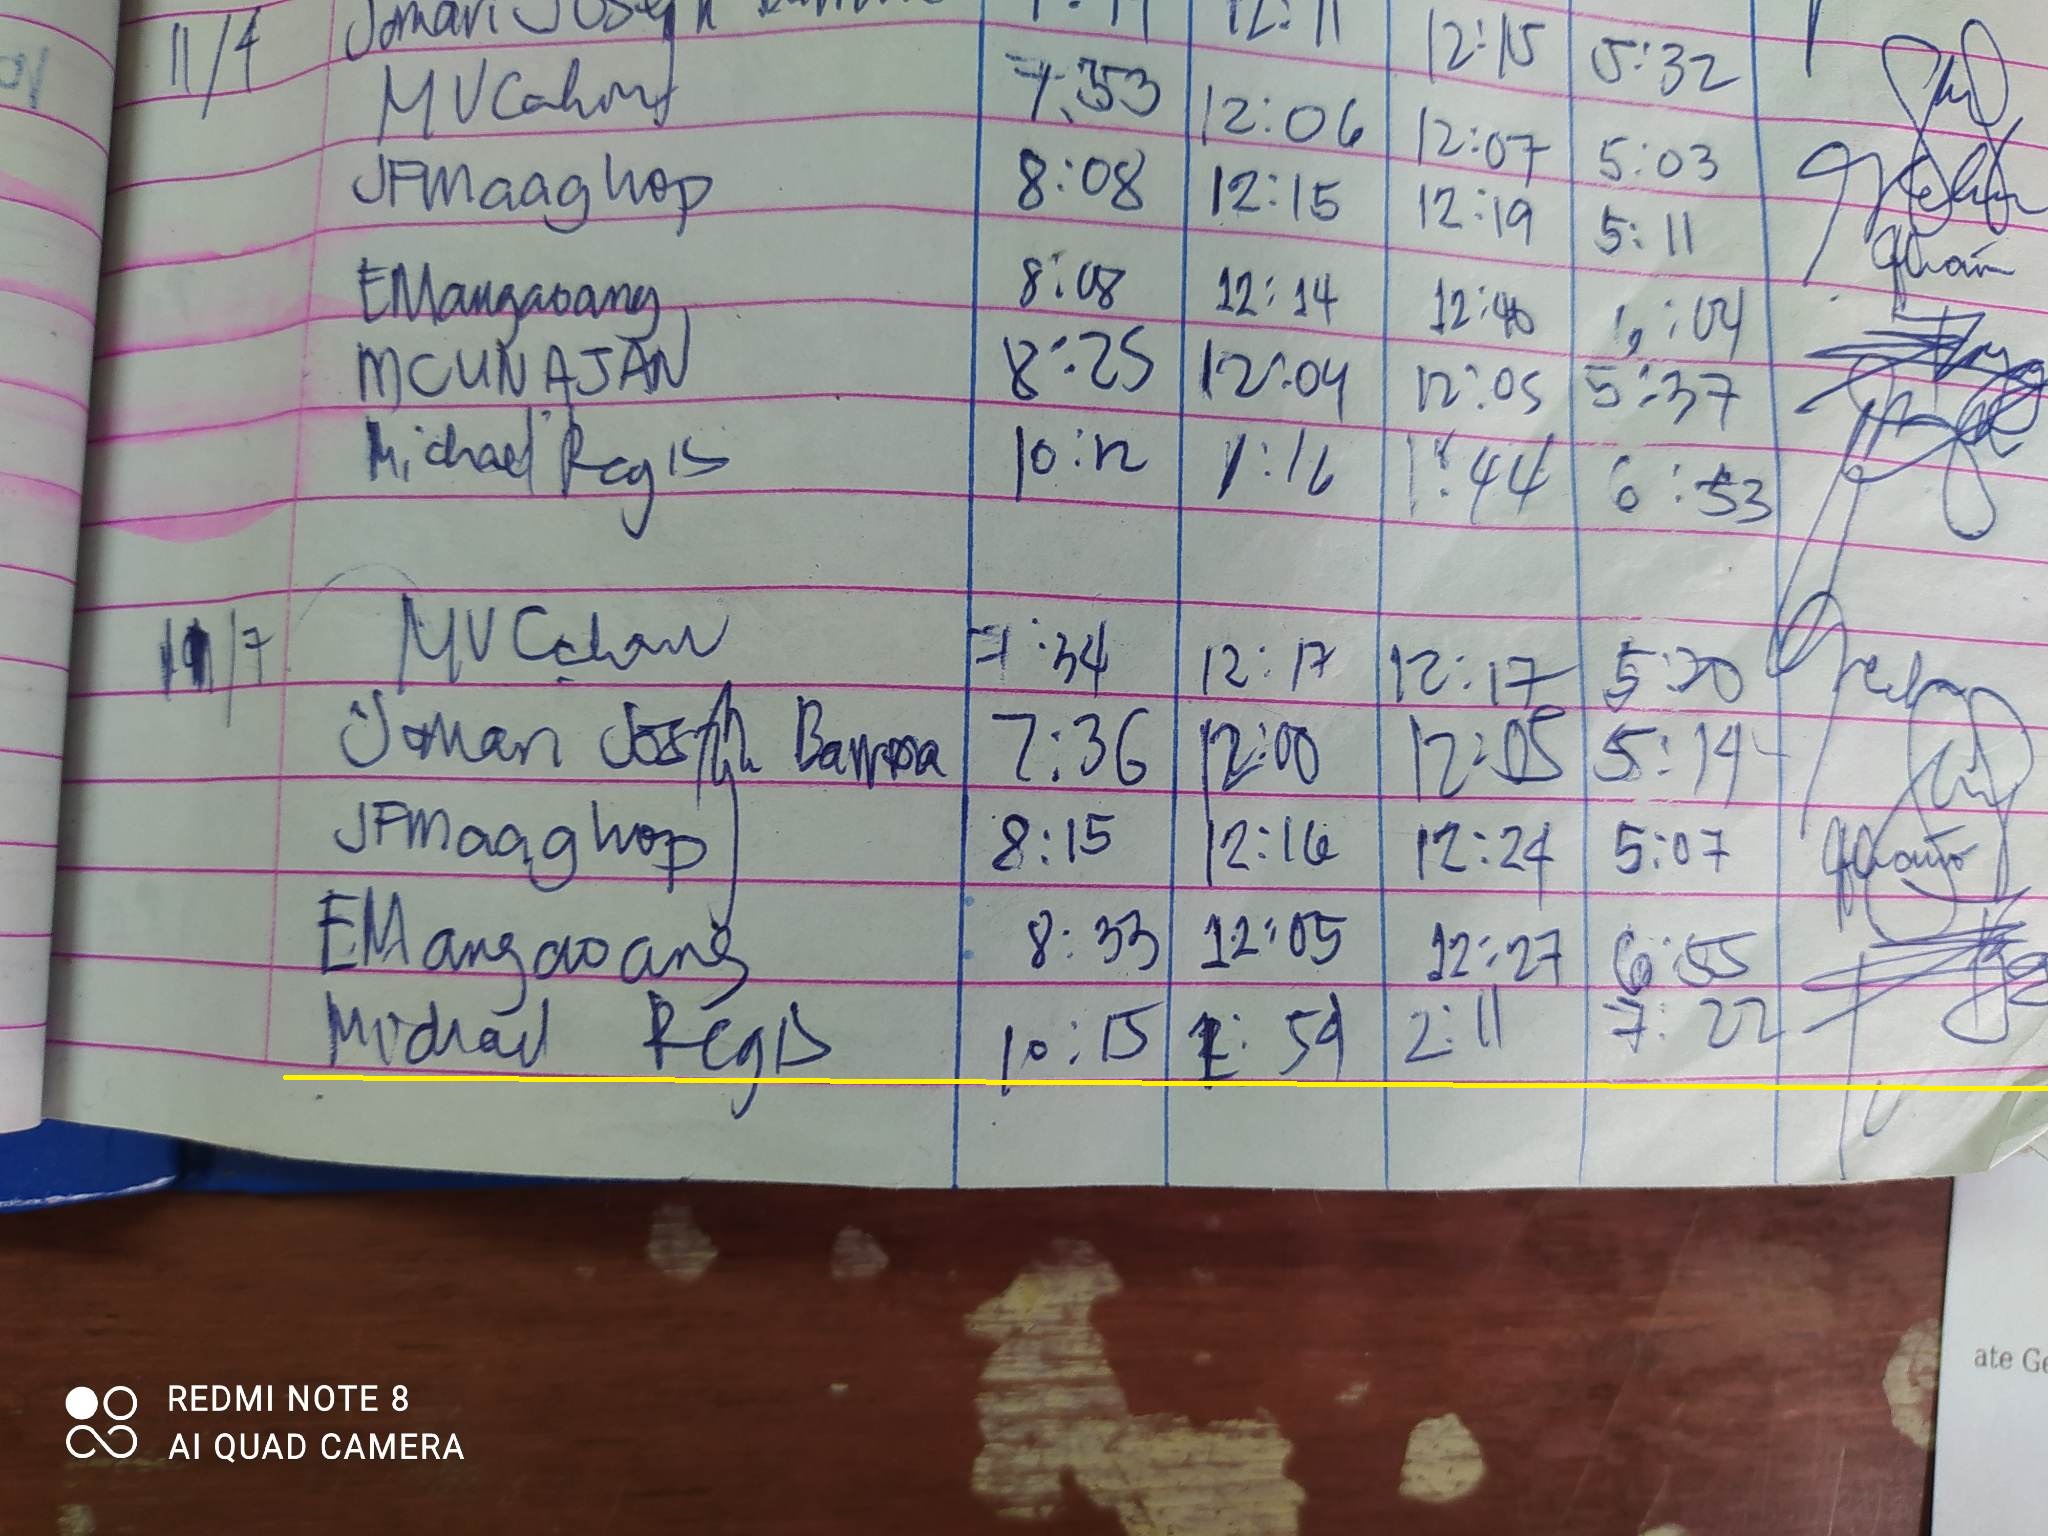 11/4 Jomari Joseph 12:11 12:15 5:32
MVCahony 7:53 12:06 12:07 5:03
JFMaaghop 8:08 12:15 12:19 5:11
EMangaoang 8:08 12:14 12:40 6:04
MCUNAJAN 8:25 12:04 12:05 5:37
Michael Regis 10:12 1:16 1:44 6:53
11/7 MVCahon 7:34 12:17 12:17 5:20
Joman Joseph Barrosa 7:36 12:00 12:05 5:14
JFMaaghop 8:15 12:16 12:24 5:07
EMangaoang 8:33 12:05 12:27 6:55
Michael Regis 10:15 1:59 2:11 7:22
ate Ge
REDMI NOTE 8
AI QUAD CAMERA